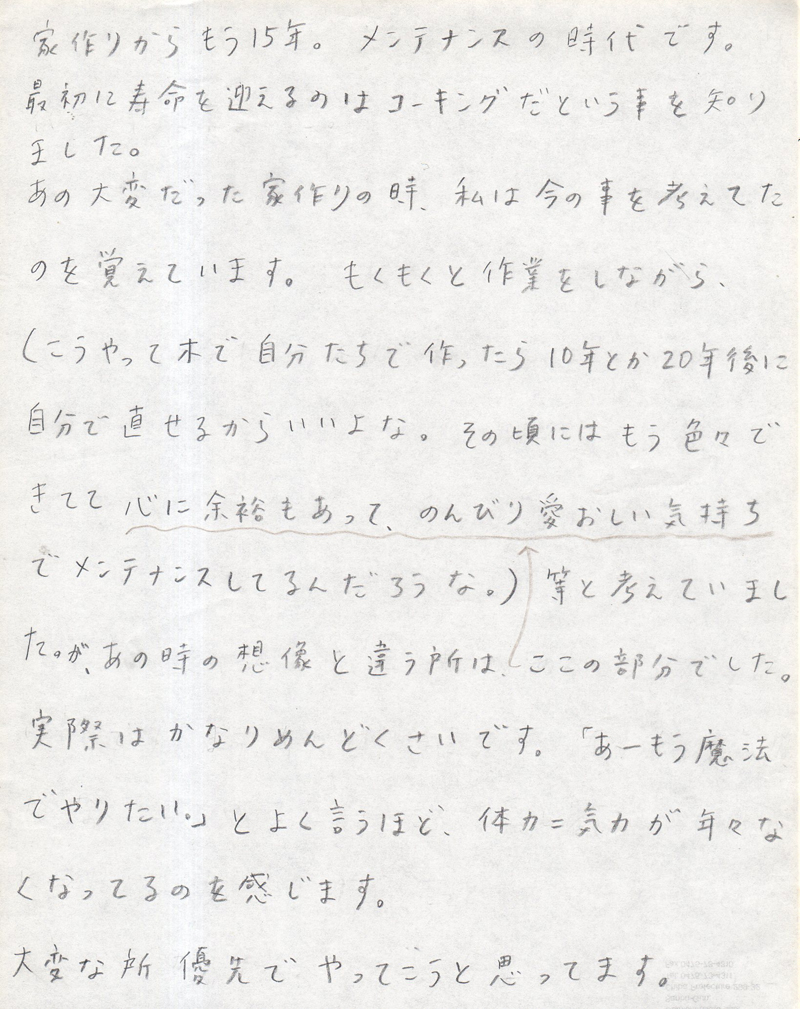 家作りからもう15年。メンテナンスの時代です。
最初に寿命を迎えるのはコーキングだという事を知り
ました。
あの大変だった家作りの時、私は今の事を考えてた
のを覚えています。もくもくと作業をしながら、
(こうやって木で自分たちで作ったら10年とか20年後に
自分で直せるからいいよな。その頃にはもう色々で
きてて心に余裕もあって、のんびり愛おしい気持ち
でメンテナンスしてるんだろうな。)等と考えていまし
た。が、あの時の想像と違う所は、ここの部分でした。
実際はかなりめんどくさいです。「あーもう魔法
でやりたい。」とよく言うほど、体力=気力が年々な
くなってるのを感じます。
大変な所優先でやってこうと思ってます。